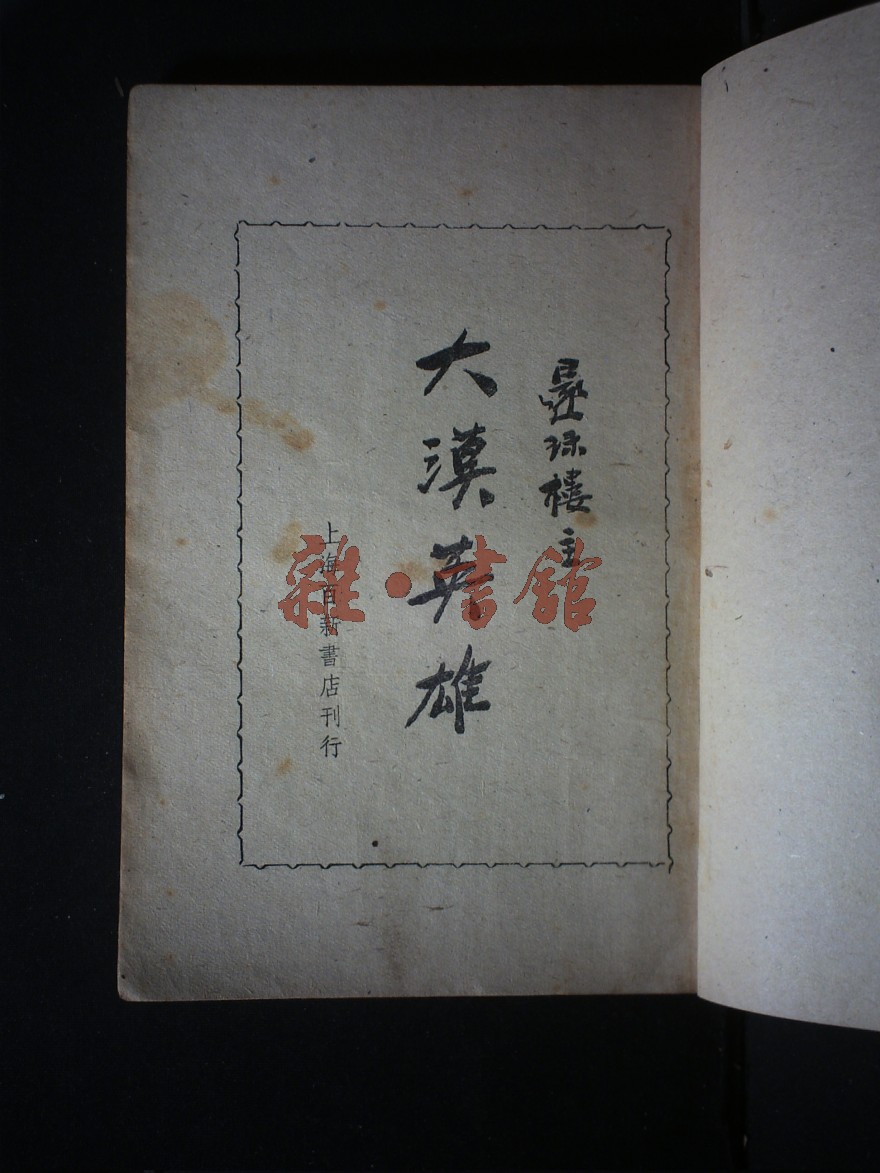 還珠樓主
大漠英雄
上海百新書店刊行
雜·書館